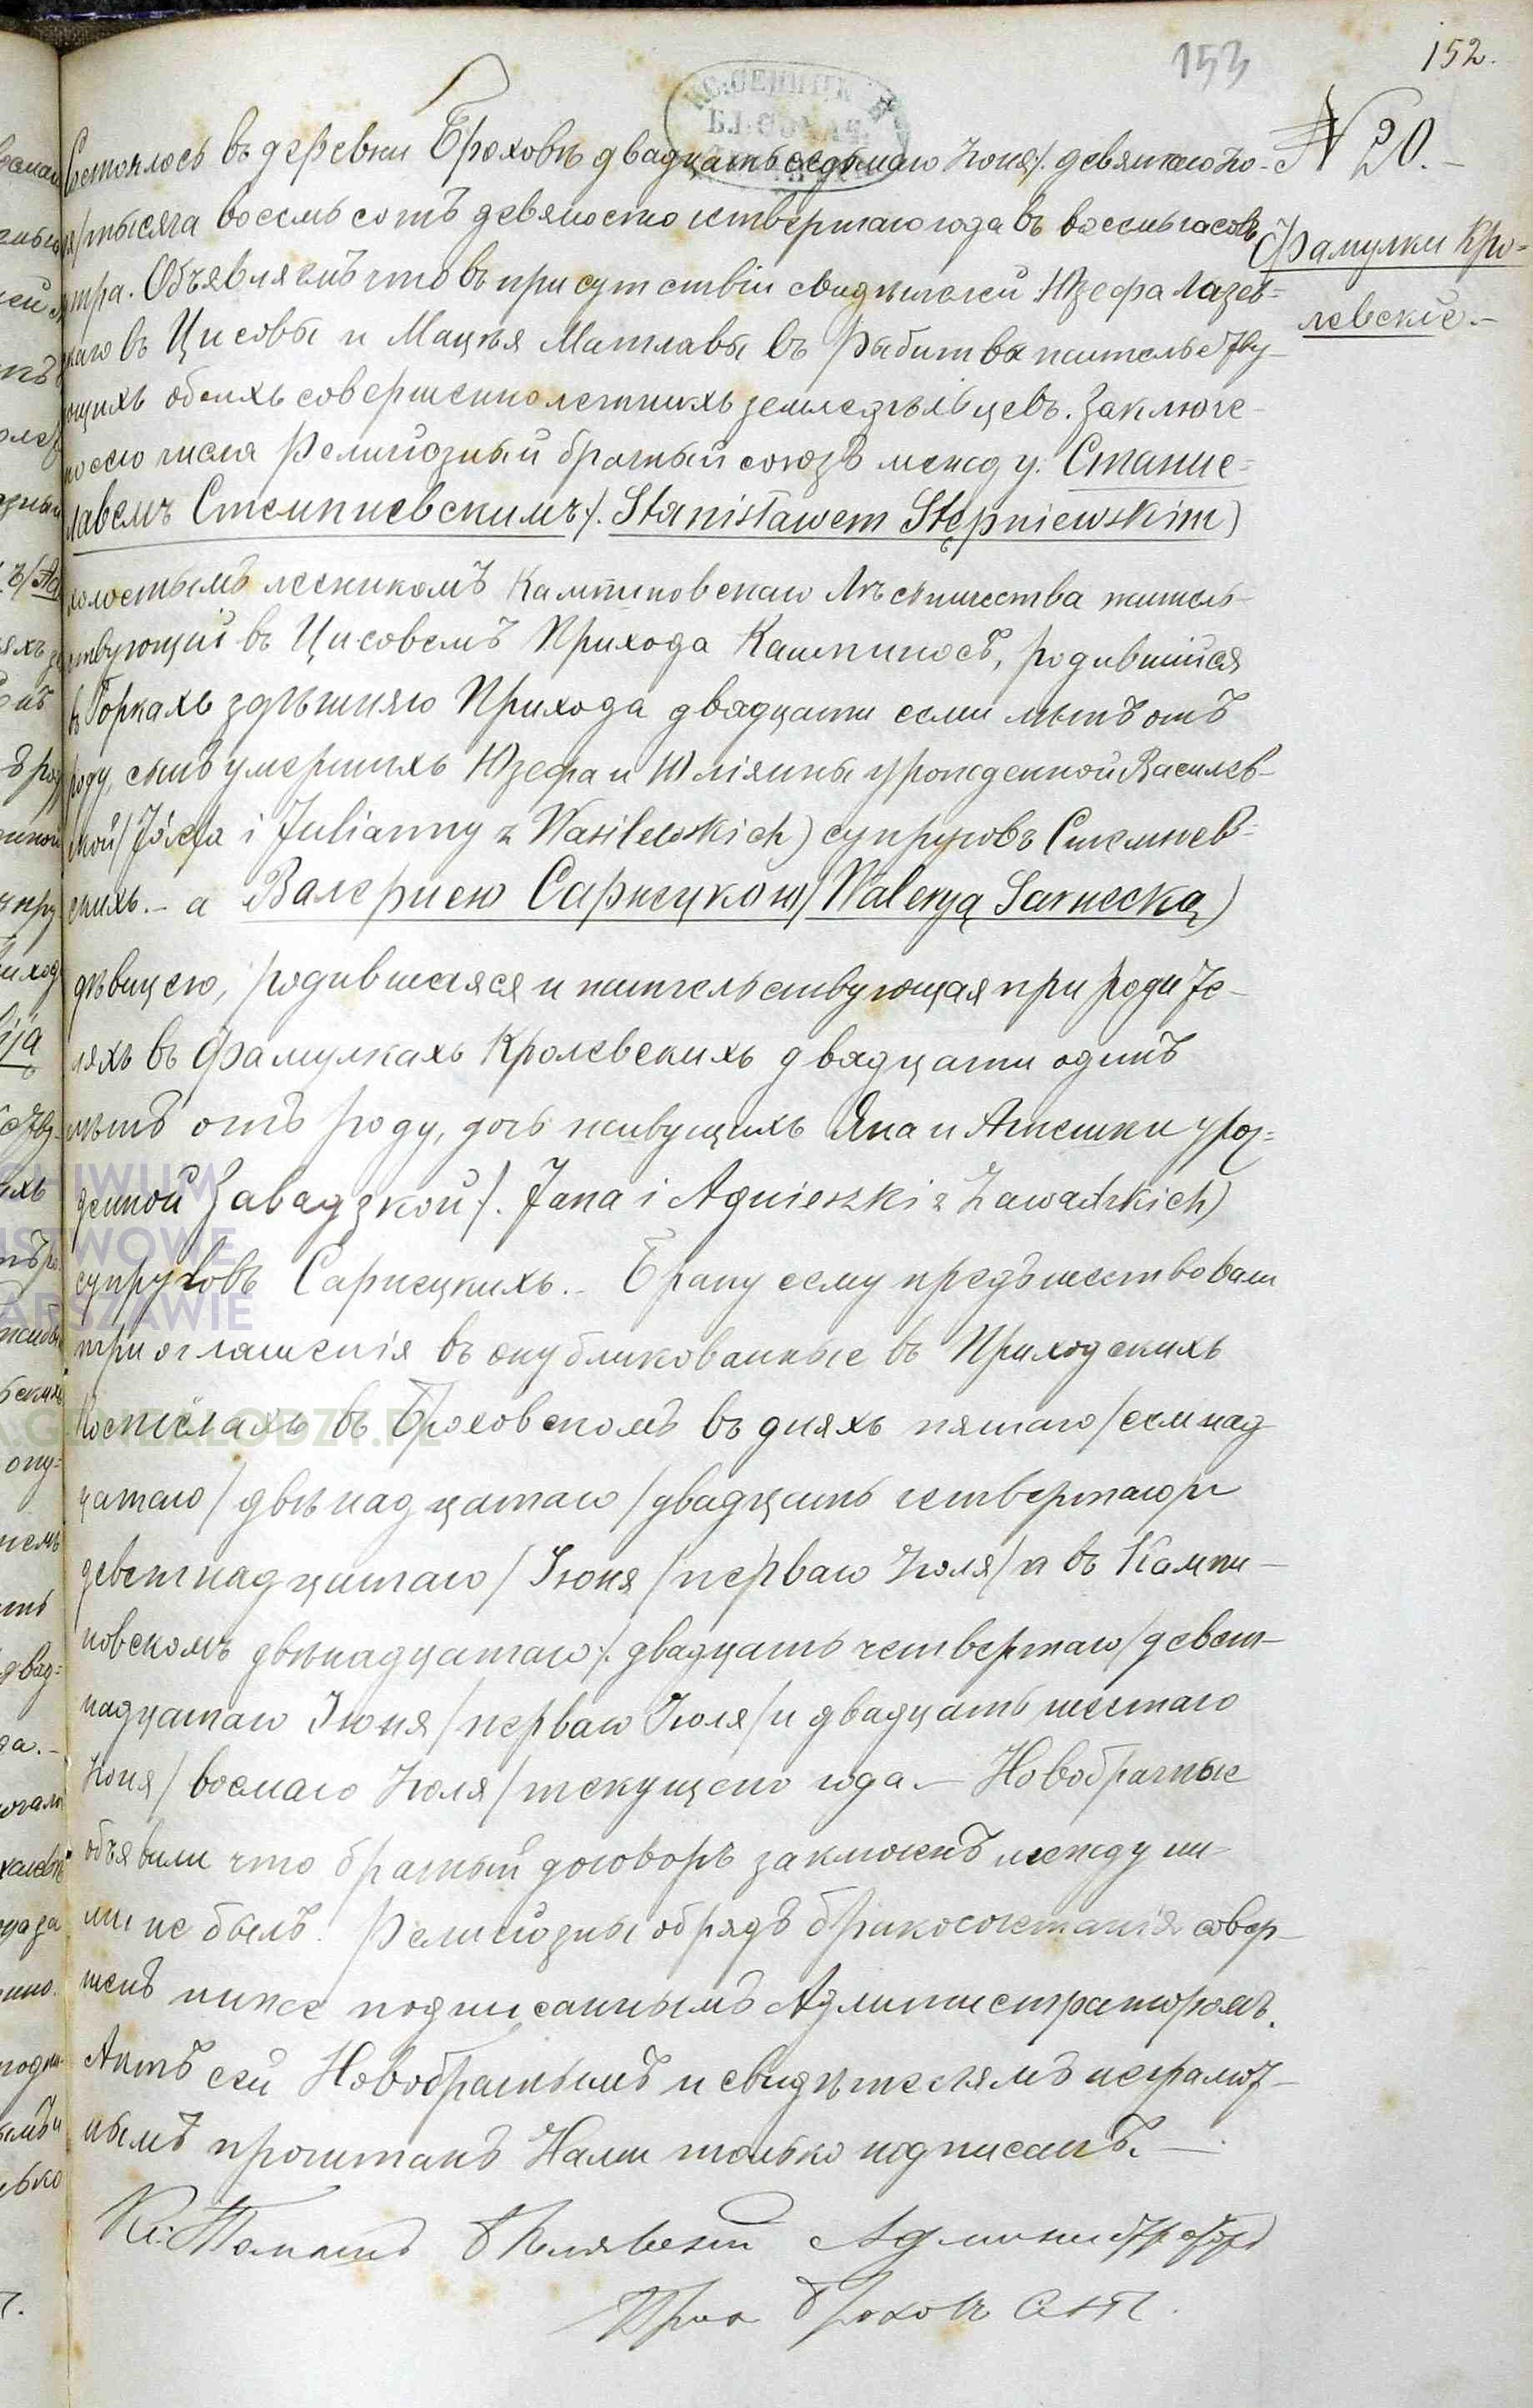 153
152.
№ 20.
Фамулки Кро-
левскіе.-
Состоялось въ деревни Броховѣ двадцать седьмаго Іюня/. девятаго Ію-
ля/тысяча восемь сотъ девяносто четвертаго года въ восемь часовъ
утра. Объявляемъ что въ присутствіи свидѣтелей Юзефа Лазев-
скаго въ Цисовы и Мацѣя Матлавы въ Рыбитвѣ жительству-
ющихъ обоихъ совершеннолетнихъ земледѣльцевъ. Заключе-
но сего числа Религіозный брачный союзъ между: Станис-
лавемъ Стемпневскимъ/. Stanisławem Stępniewskim)
холостымъ лесникомъ Кампиновскаго Лѣсничества житель-
ствующій въ Цисовемъ Прихода Кампиносъ, родившійся
въ Горкахъ здѣшняго Прихода двадцати семи лѣтъ отъ
роду, сынъ умершихъ Юзефа и Юліянны урожденной Василев-
ской/Józefa i Julianny z Wasilewskich) супруговъ Стемпнев-
скихъ.- а Валерыею Сарнецкою/Waleryą Sarnecką)
дѣвицею, родившаяся и жительствующая при родите-
ляхъ въ Фамулкахъ Кролевскихъ двадцати одинъ
лѣтъ отъ роду, дочь живущихъ Яна и Агнешки урож-
денной Завадзкой/. Jana i Agnieszki z Zawadzkich)
супруговъ Сарнецкихъ.- Браку сему предшествовали
три оглашенія въ опубликованные въ Приходскихъ
Костёлахъ въ Броховскомъ въ дняхъ пятаго/семнад
цатаго/двѣнадцатаго/двадцать четвертаго/и
девятнадцатаго/Іюня/перваго Іюля/а въ Кампи-
новскомъ двѣнадцатаго/. двадцать четвертаго/девят-
надцатаго Іюня/перваго Іюля/и двадцать шестаго
Іюня/восмаго Іюля/текущего года.- Новобрачные
объявили что брачный договоръ заключенъ между ни-
ми не былъ. Религіозны обрядъ бракосочетанія совер-
шенъ ниже подписаннымъ Администраторомъ.
Актъ сей Новобрачнымъ и свидѣтелямъ неграмот-
нымъ прочитанъ Нами только подписанъ.-
Кс. Администраторъ
Прих. Броховъ